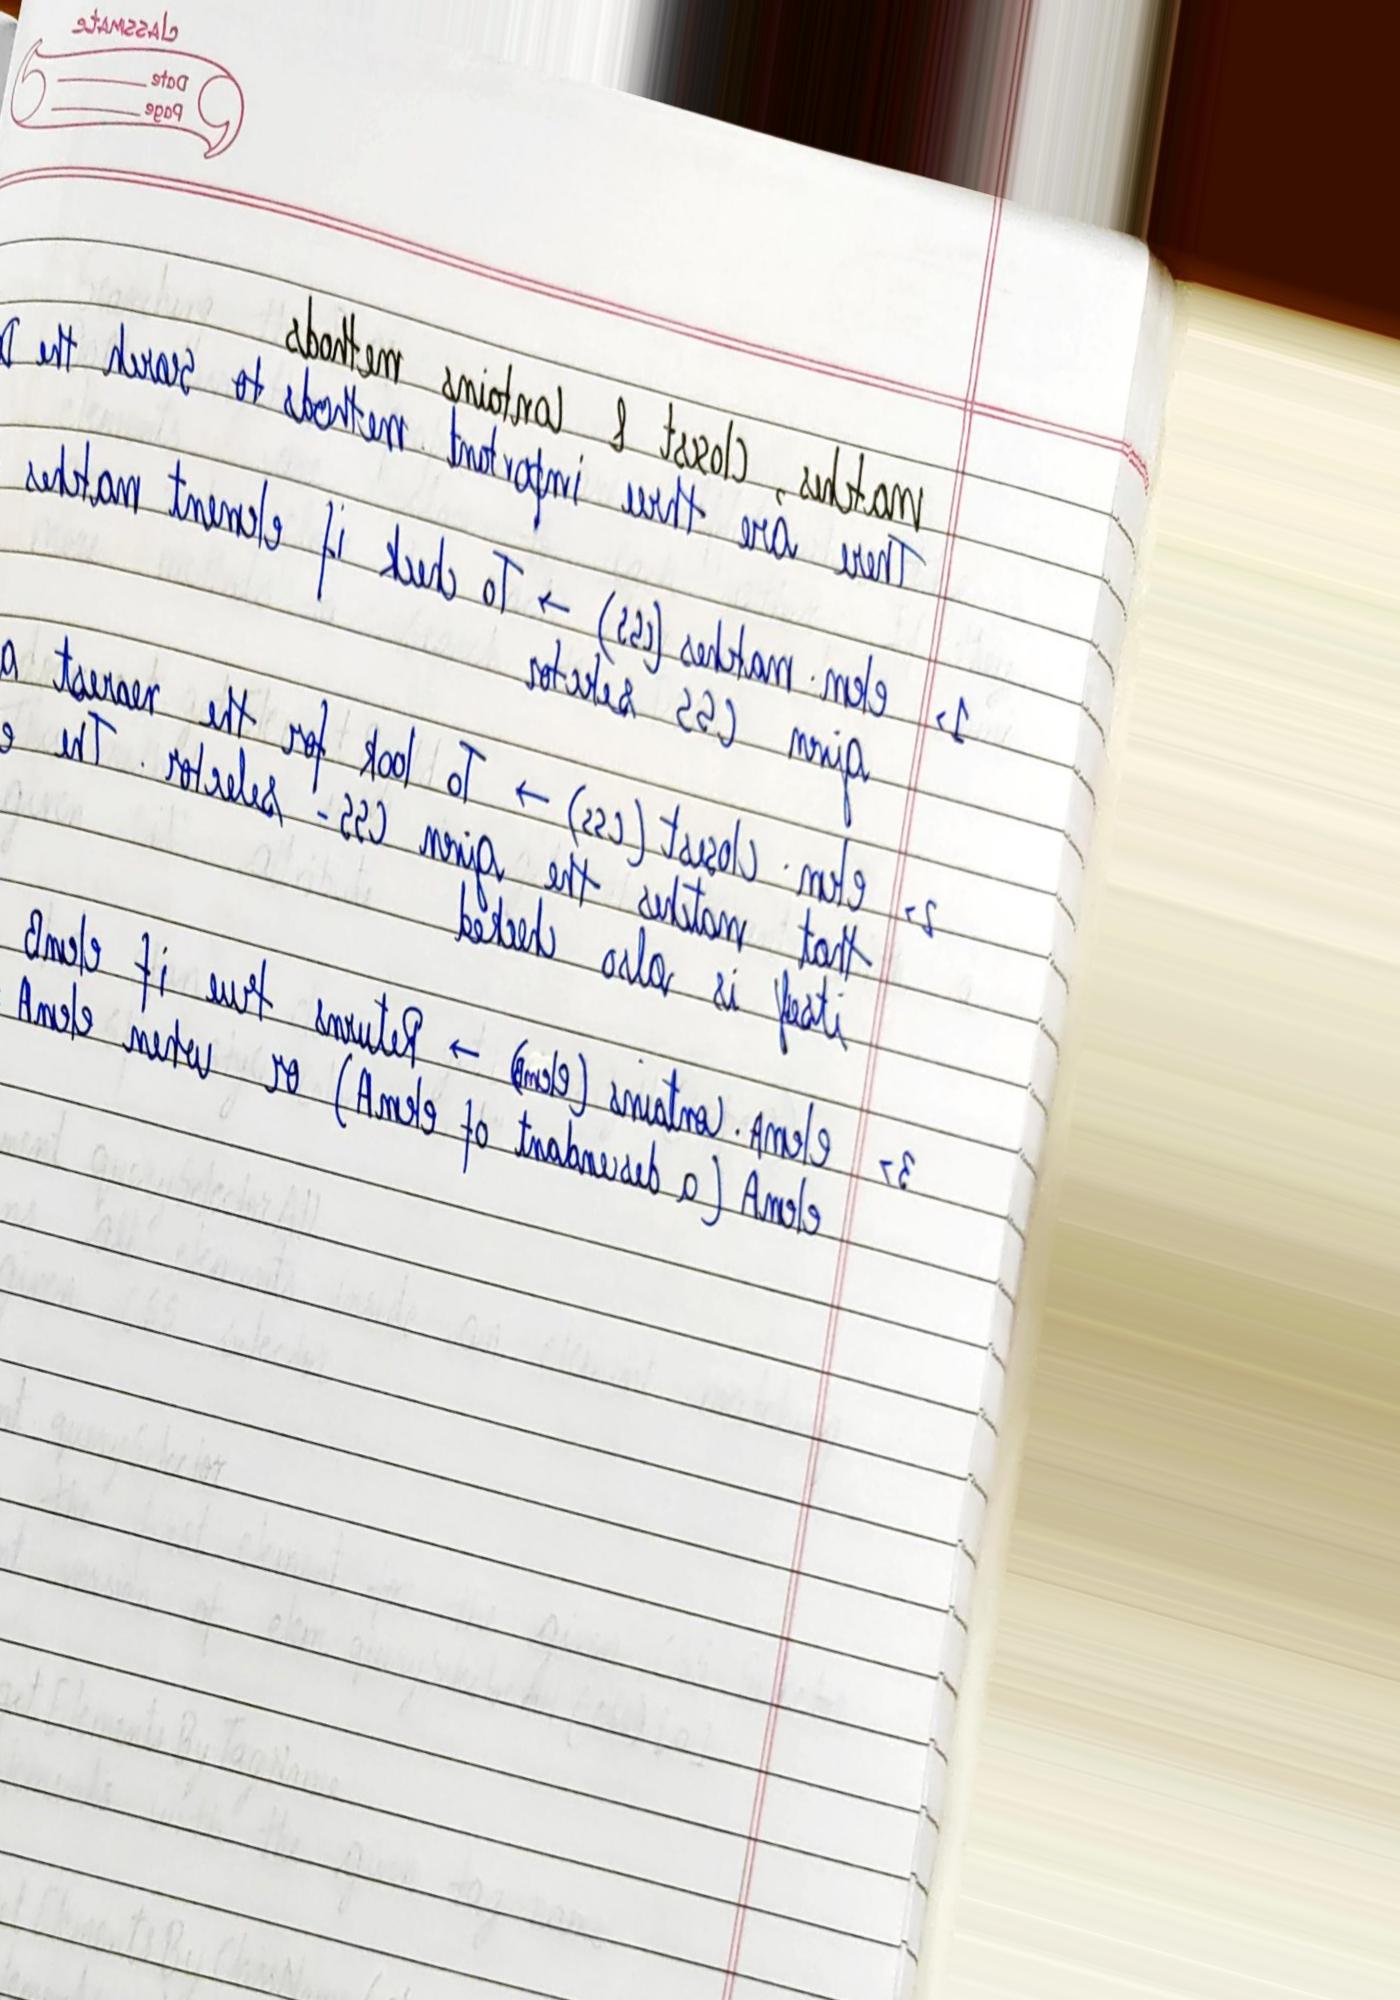 classmate
Date
Page
matches, closest & contains methods
There are three important methods to search the D
1> elem.matches (CSS) → To check if element matches
given CSS selector
2> elem.closest (CSS) → To look for the nearest a
that matches the given CSS-selector. The e
itself is also checked
3> elemA.contains (elemB) → Returns true if elemB
elemA (a descendant of elemA) or when elemA